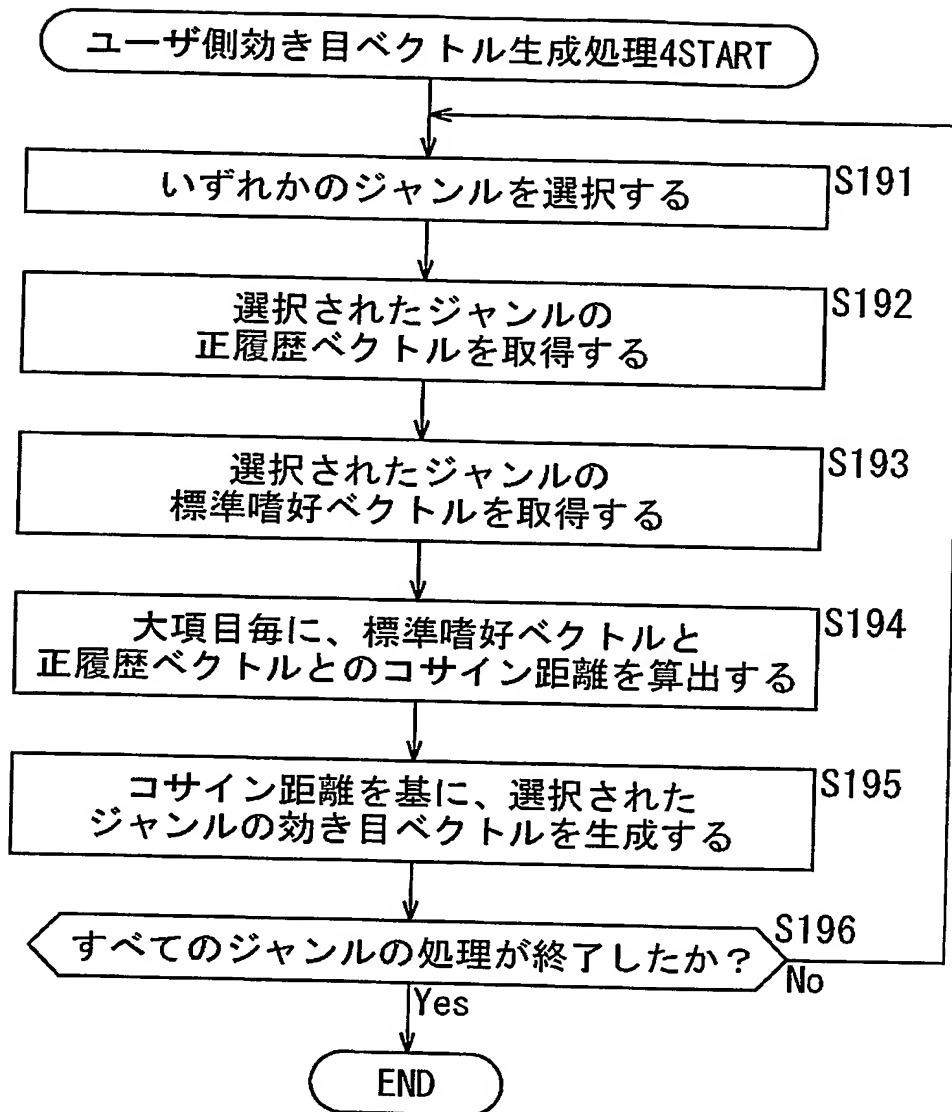 ユーザ側効き目ベクトル生成処理4START
いずれかのジャンルを選択する
S191
選択されたジャンルの
正履歴ベクトルを取得する
S192
選択されたジャンルの
標準嗜好ベクトルを取得する
S193
大項目毎に、標準嗜好ベクトルと
正履歴ベクトルとのコサイン距離を算出する
S194
コサイン距離を基に、選択された
ジャンルの効き目ベクトルを生成する
S195
すべてのジャンルの処理が終了したか？
S196
No
Yes
END